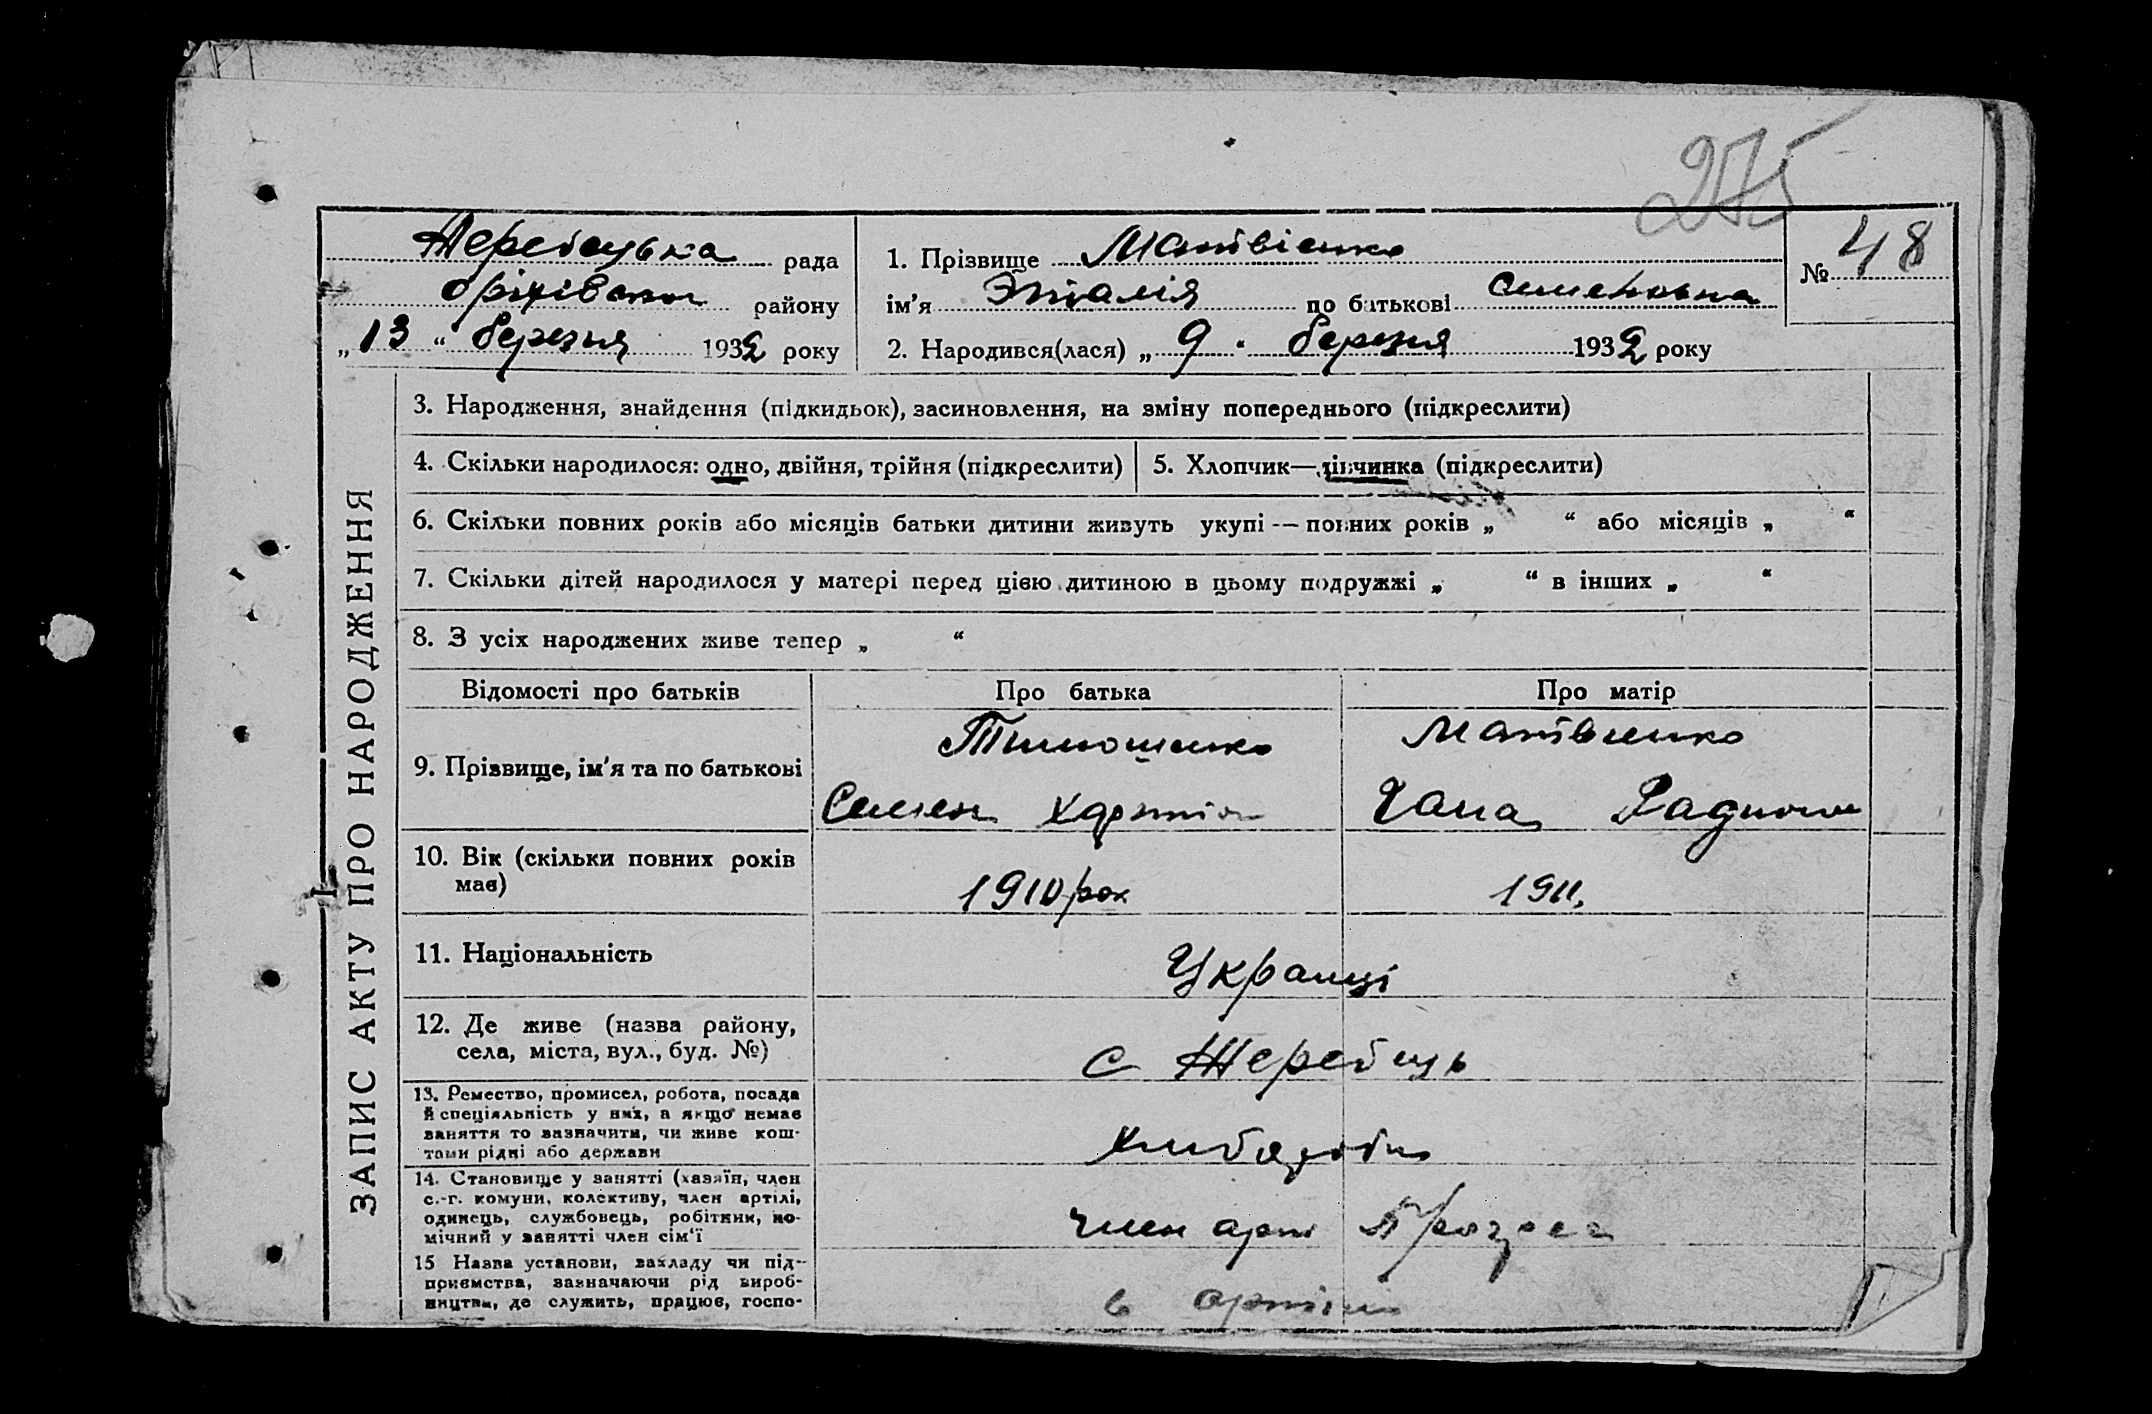 275
Жеребецька рада
Оріхівськ району
„ 13 “ березня 1932 року
1. Прізвище Матвієнко
ім'я Эталія по батькові Семеновна
2. Народився(лася) „ 9 “ березня 1932 року
№ 48
ЗАПИС АКТУ ПРО НАРОДЖЕННЯ
3. Народження, знайдення (підкидьок), засиновлення, на зміну попереднього (підкреслити)
4. Скільки народилося: одно, двійня, трійня (підкреслити)
5. Хлопчик—дівчинка (підкреслити)
6. Скільки повних років або місяців батьки дитини живуть укупі — повних років „ “ або місяців „ “
7. Скільки дітей народилося у матері перед цією дитиною в цьому подружжі „ “ в інших „ “
8. З усіх народжених живе тепер „ “
Відомості про батьків Про батька Про матір
9. Прізвище, ім'я та по батькові
Тимошенко
Семен
Матвиенко
10. Вік (скільки повних років
має)
1910 рок
1911.
11. Національність
Украинці
12. Де живе (назва району,
села, міста, вул., буд. №)
с Жеребець
13. Ремество, промисел, робота, посада
й спеціяльність у них, а якщо немає
заняття то зазначити, чи живе кош-
тами рідні або держави
14. Становище у занятті (хазяїн, член
с.-г. комуни, колективу, член артілі,
одинець, службовець, робітник, по-
мічний у занятті член сім'ї
член арт Прогрес
15 Назва установи, закладу чи під-
приємства, зазначаючи рід вироб-
ництва, де служить, працює, госпо-
в артілі